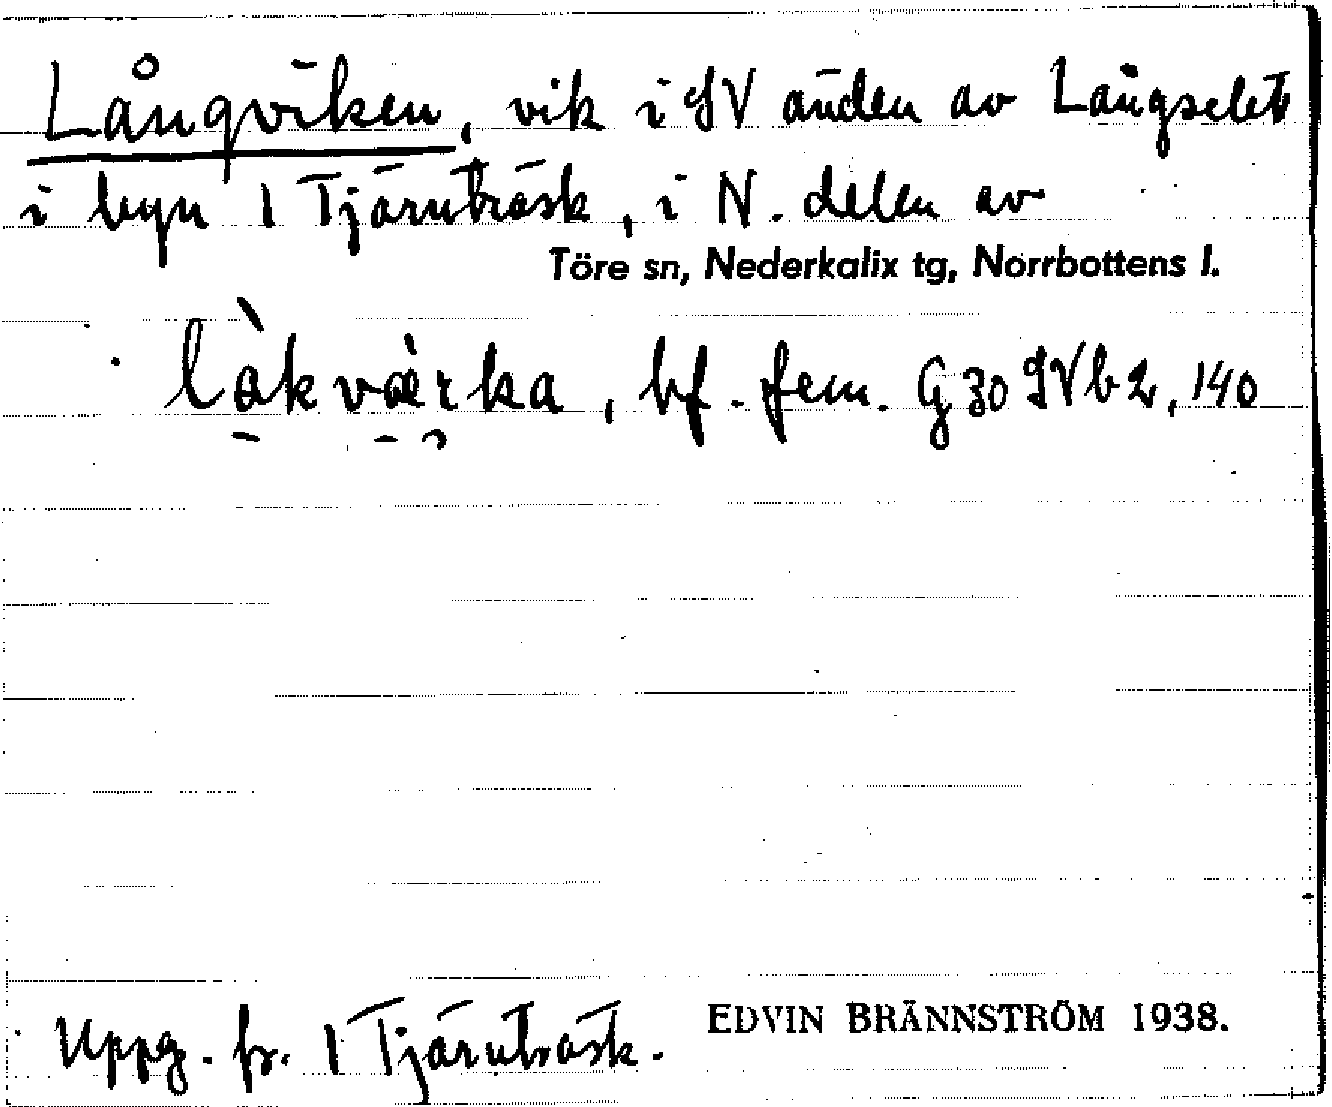 Långviken, vik i SV änden av Långselet
i byn 1 Tjärnträsk, i N. delen av
Töre sn, Nederkalix tg, Norrbottens l.
bf. fem. G 30 SV b 2, 140
Uppg. fr. 1 Tjärnträsk.
EDVIN BRÄNNSTRÖM 1938.